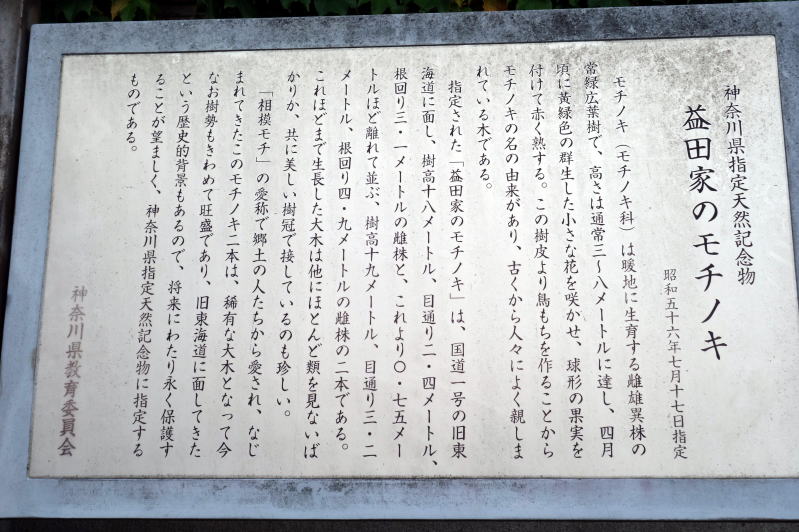 神奈川県指定天然記念物
益田家のモチノキ
昭和五十六年七月十七日指定
モチノキ（モチノキ科）は暖地に生育する雌雄異株の
常緑広葉樹で、高さは通常三～八メートルに達し、四月
頃に黄緑色の群生した小さな花を咲かせ、球形の果実を
付けて赤く熟する。この樹皮より鳥もちを作ることから
モチノキの名の由来があり、古くから人々によく親しま
れている木である。
指定された「益田家のモチノキ」は、国道一号の旧東
海道に面し、樹高十八メートル、目通り二・四メートル、
根回り三・一メートルの雌株と、これより〇・七五メー
トルほど離れて並ぶ、樹高十九メートル、目通り三・二
メートル、根回り四・九メートルの雌株の二本である。
これほどまで生長した大木は他にほとんど類を見ないば
かりか、共に美しい樹冠で接しているのも珍しい。
「相模モチ」の愛称で郷土の人たちから愛され、なじ
まれてきたこのモチノキ二本は、稀有な大木となって今
なお樹勢もきわめて旺盛であり、旧東海道に面してきた
という歴史的背景もあるので、将来にわたり永く保護す
ることが望ましく、神奈川県指定天然記念物に指定する
ものである。
神奈川県教育委員会